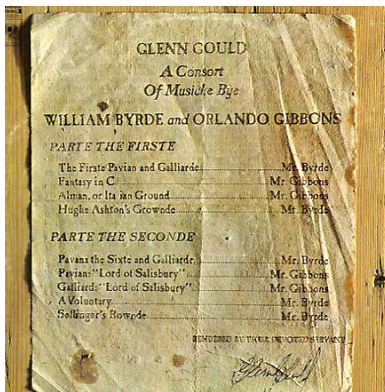 GLENN GOULD
A Consort
Of Musicke Bye
WILLIAM BYRDE and ORLANDO GIBBONS
PARTE THE FIRSTE
The Firste Pavian and Galliarde Mr. Byrde
Fantasy in C Mr. Gibbons
Alman, or Italian Ground Mr. Gibbons
Hughe Ashton's Grownde Mr. Byrde
PARTE THE SECONDE
Pavana the Sixte and Galliarde Mr. Byrde
Pavian: "Lord of Salisbury" Mr. Gibbons
Galliard: "Lord of Salisbury" Mr. Gibbons
A Voluntary Mr. Byrde
Sellinger's Rownde Mr. Byrde
RENDERED BY
Glenn Gould